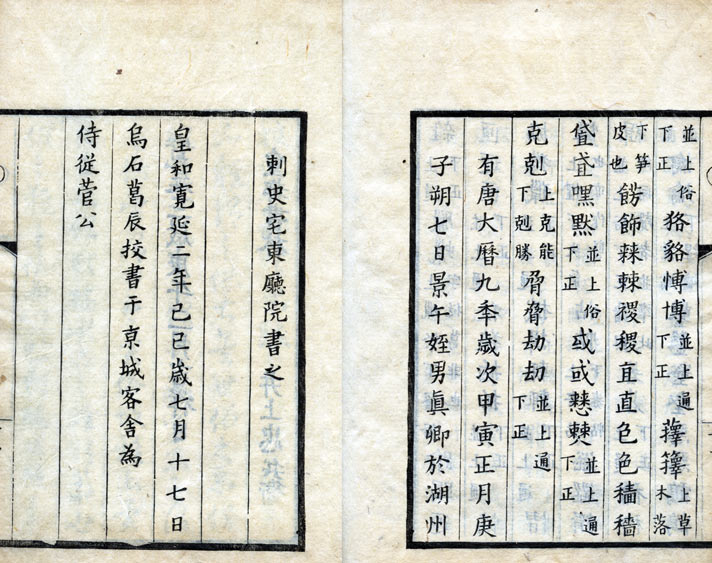 並上俗下正 狢貉愽博 並上通下正 蘀籜 上草木落
下笋皮也 餝飾棘稷稷直直色色穡穡
嘿默 並上俗下正 或 並上通下正
克剋 上克能下剋勝 脅脅刧劫 並上通下正
有唐大曆九季歲次甲寅正月庚
子朔七日景午姪男眞卿於湖州
刺史宅東廳院書之
皇和寛延二年己巳歲七月十七日
烏石葛辰挍書于京城客舍為
侍從菅公